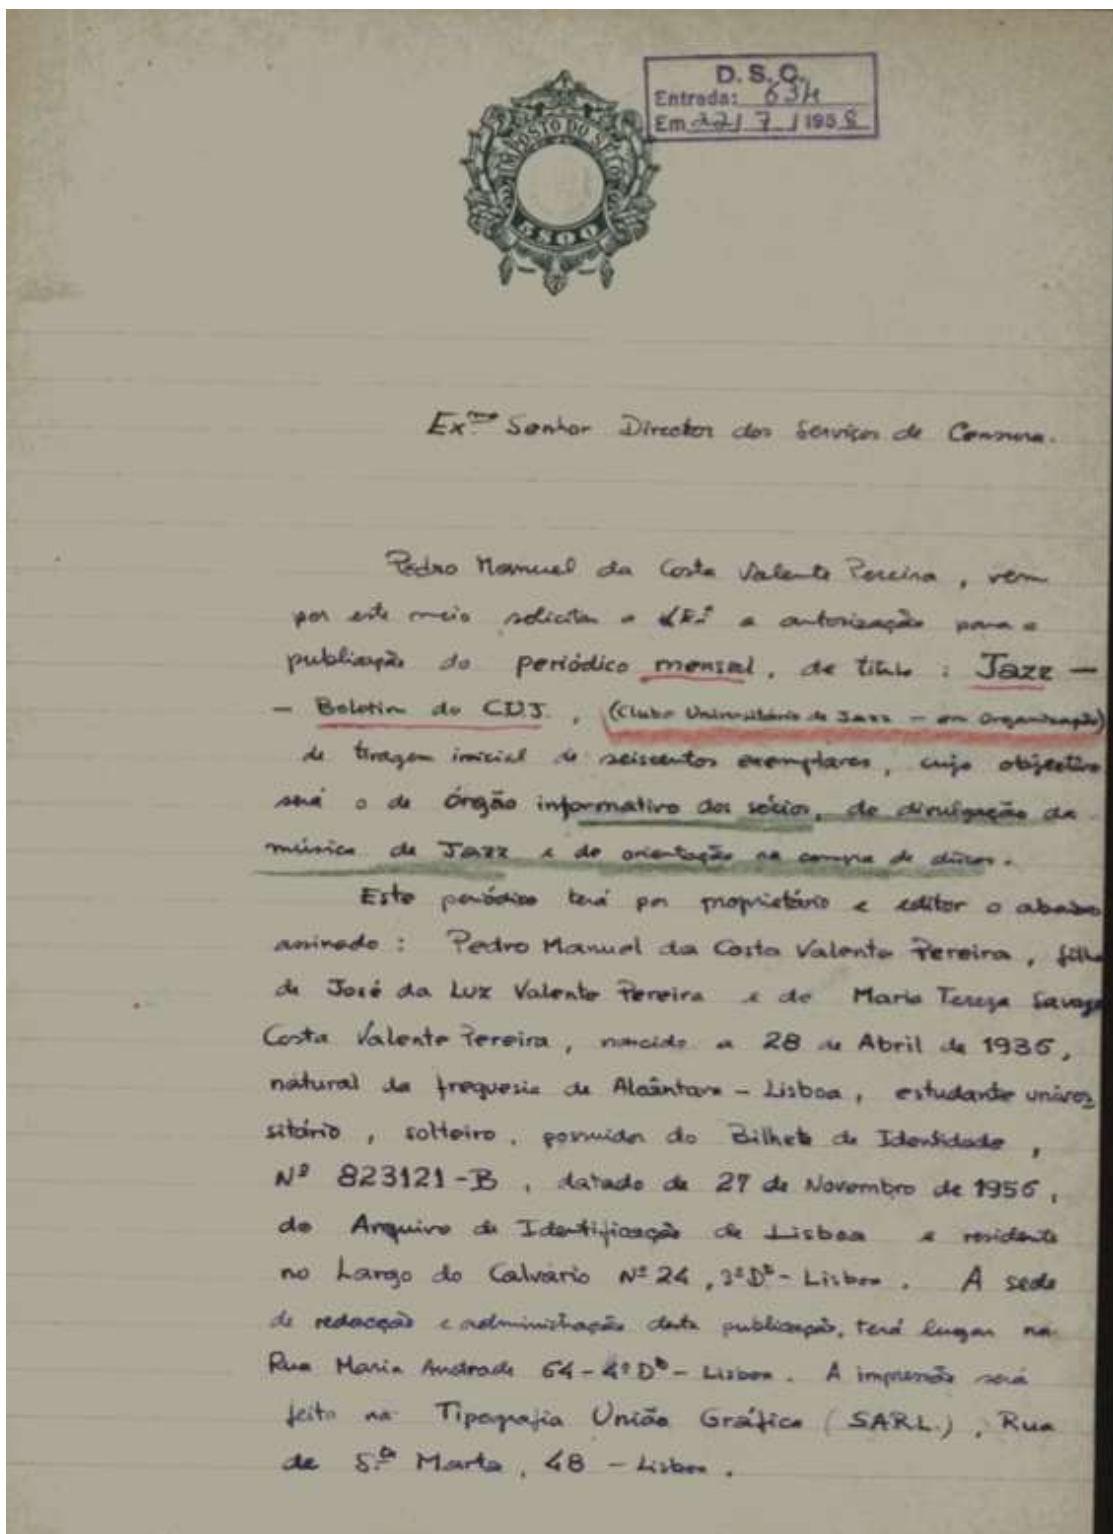 D. S. C.
Entrada: 634
Em 22 / 7 / 1958
IMPOSTO DO SELO
5$00
Ex.mo Senhor Director dos Serviços de Censura.
Pedro Manuel da Costa Valente Pereira, vem
por este meio solicitar a V.Ex.ª a autorização para a
publicação do periódico mensal, de título : Jazz —
— Boletim do CUJ. , (Clube Universitário de Jazz — em Organização)
de tiragem inicial de seiscentos exemplares, cujo objectivo
será o de órgão informativo dos sócios, de divulgação da
música de Jazz e de orientação na compra de discos.
Este periódico terá por proprietário e editor o abaixo
assinado : Pedro Manuel da Costa Valente Pereira, filho
de José da Luz Valente Pereira e de Maria Tereza Savage
Costa Valente Pereira, nascido a 28 de Abril de 1936,
natural da freguesia de Alcântara — Lisboa, estudante univer
sitário, solteiro, possuidor do Bilhete de Identidade,
Nº 823121-B, datado de 27 de Novembro de 1956,
do Arquivo de Identificação de Lisboa e residente
no Largo do Calvário Nº 24, 3º Dto - Lisboa. A sede
de redacção e administração desta publicação, terá lugar na
Rua Maria Andrade 64 - 4º Dto - Lisboa. A impressão será
feita na Tipografia União Gráfica (SARL.), Rua
de S.ta Marta, 48 — Lisboa.